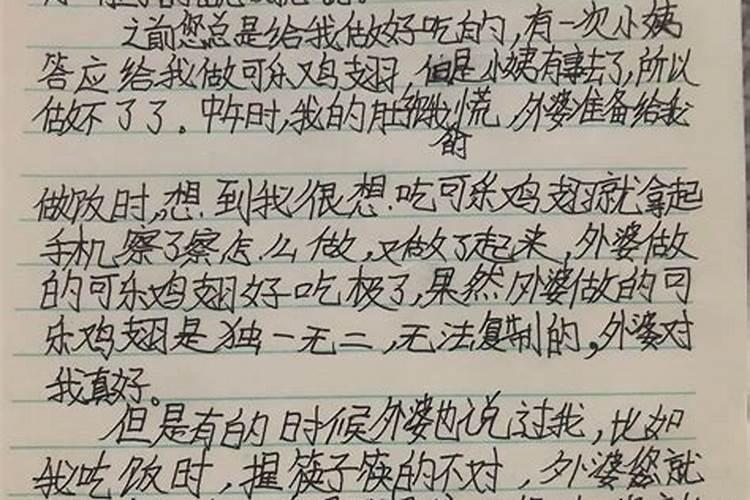 之前您总是给我做好吃的,有一次小姨
答应给我做可乐鸡翅,但是小姨有事去了,所以
做不了了。中午时,我的肚饿慌,外婆准备给我
的
做饭时,想到我很想吃可乐鸡翅就拿起
手机察了察怎么做,又做了起来,外婆做
的可乐鸡翅好吃极了,果然外婆做的可
乐鸡翅是独一无二,无法复制的。外婆对
我真好。
但是有的时候外婆也说过我,比如
我吃饭时,握筷子筷的不对,外婆您就